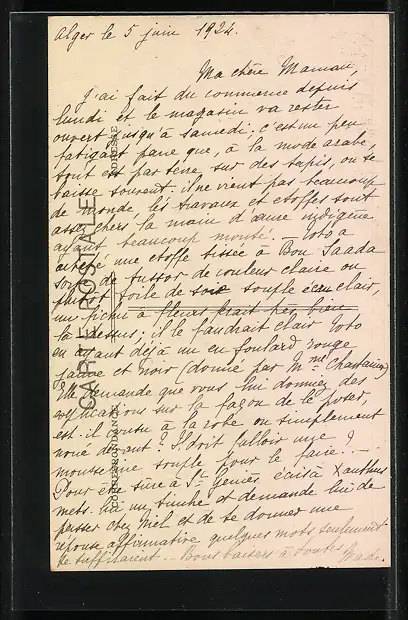 Alger le 5 juin 1924.
Ma chère Maman,
J'ai fait du commerce depuis
lundi et le magasin va rester
ouvert jusqu'à samedi; c'est un peu
fatigant parce que, à la mode arabe,
tout est par terre, sur des tapis, on se
baisse souvent. il ne vient pas beaucoup
de monde, les travaux et étoffes sont
assez chers la main d'œuvre indigène
ayant beaucoup monté. — Toto a
acheté une étoffe tissée à Bou Saada
sorte de tussor de couleur claire ou
plutôt toile de soie souple écru clair,
un fichu à fleurs irait très bien
là dessus; il le faudrait clair Toto
en ayant déjà un en foulard rouge
jaune et noir (donné par Mme Chastaing)
Elle demande que vous lui donniez des
explications sur la façon de le poser,
est-il cousu à la robe ou simplement
noué devant? Il doit falloir une
mousseline souple pour le faire? —
Pour être sûre à St Geniès écris à Xanthus
mets lui un timbre et demande lui de
passer chez Mel et de te donner une
réponse affirmative quelques mots seulement
te suffiraient. — Bons baisers à toutes
Mad.
CARTE POSTALE
ADRESSE
CORRESPONDANCE